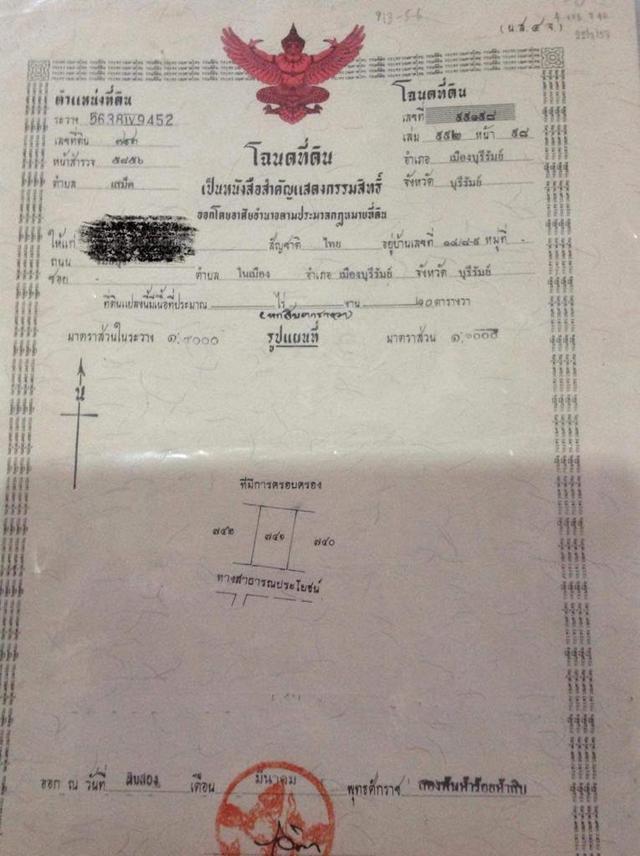 (น.ส.๔ จ.)
ตำแหน่งที่ดิน
ระวาง 5638IV9452
เลขที่ดิน
หน้าสำรวจ ๕๘๕๖
ตำบล เสม็ด
โฉนดที่ดิน
เลขที่ ๕๕๑๕๘
เล่ม ๕๕๒ หน้า ๕๘
อำเภอ เมืองบุรีรัมย์
จังหวัด บุรีรัมย์
โฉนดที่ดิน
เป็นหนังสือสำคัญแสดงกรรมสิทธิ์
ออกโดยอาศัยอำนาจตามประมวลกฎหมายที่ดิน
ให้แก่ สัญชาติ ไทย อยู่บ้านเลขที่ ๑๘/๘-๙ หมู่ที่ -
ถนน
ซอย - ตำบล ในเมือง อำเภอ เมืองบุรีรัมย์ จังหวัด บุรีรัมย์
ที่ดินแปลงนี้มีเนื้อที่ประมาณ ไร่ งาน ๒๐ ตารางวา
มาตราส่วนในระวาง ๑: รูปแผนที่ มาตราส่วน ๑:
น
ที่มีการครอบครอง
๗๔๒ ๗๔๑ ๗๔๐
ทางสาธารณประโยชน์
ออก ณ วันที่ สิบสอง เดือน มีนาคม พุทธศักราช สองพันห้าร้อยห้าสิบ